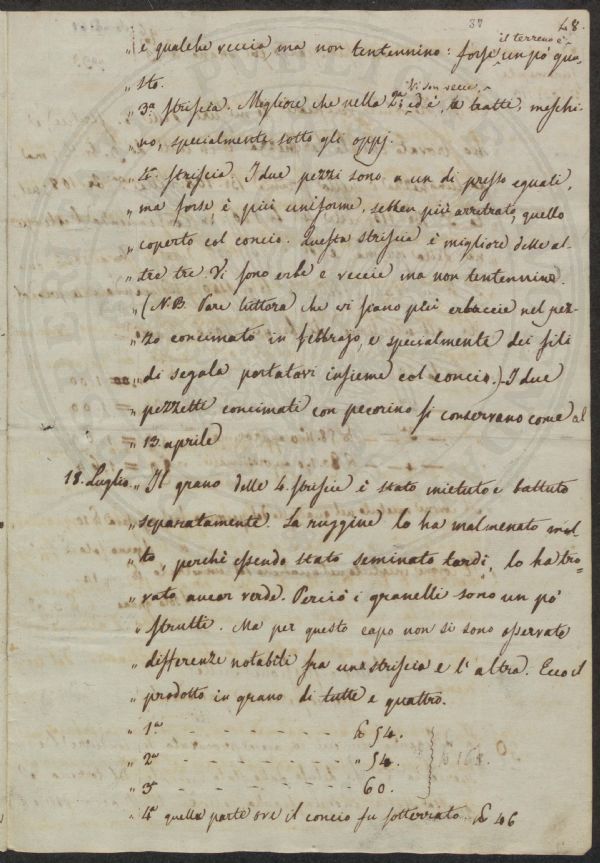 37 48.
il terreno è
„ è qualche veccia, ma non tentennino: forse un pò gua-
„ sto.
Vi son secce,
„ 3.ª striscia. Migliore che nella 2.ª ed è, a tratti, meschi-
„ no, specialmente sotto gli oppj.
„ 4.ª striscia. I due pezzi sono a un di presso eguali,
„ ma forse è più uniforme, sebben più arretrato, quello
„ coperto col concio. Questa striscia è migliore delle al-
„ tre tre. Vi sono erbe e veccie ma non tentennino.
„ (N.B. Pare tuttora che vi siano più erbaccie nel pez-
„ zo concimato in febbrajo, e specialmente dei fili
„ di segala portatavi insieme col concio.) I due
„ pezzetti concimati con pecorino si conservano come al
„ 13 aprile
18. Luglio „ Il grano delle 4. striscie è stato mietuto e battuto
„ separatamente. La ruggine lo ha malmenato mol-
„ to, perchè essendo stato seminato tardi, lo ha tro-
„ vato ancor verde. Perciò i granelli sono un pò
„ strutti. Ma per questo capo non si sono osservate
„ differenze notabili fra una striscia e l'altra. Ecco il
„ prodotto in grano di tutte e quattro.
„ 1.ª - - - - - - - ℔ 54.
„ 2.ª - - - - - - - „ 54.
„ 3.ª - - - - - - - 60.
„ 4.ª quella parte ove il concio fu sotterrato ℔ 46